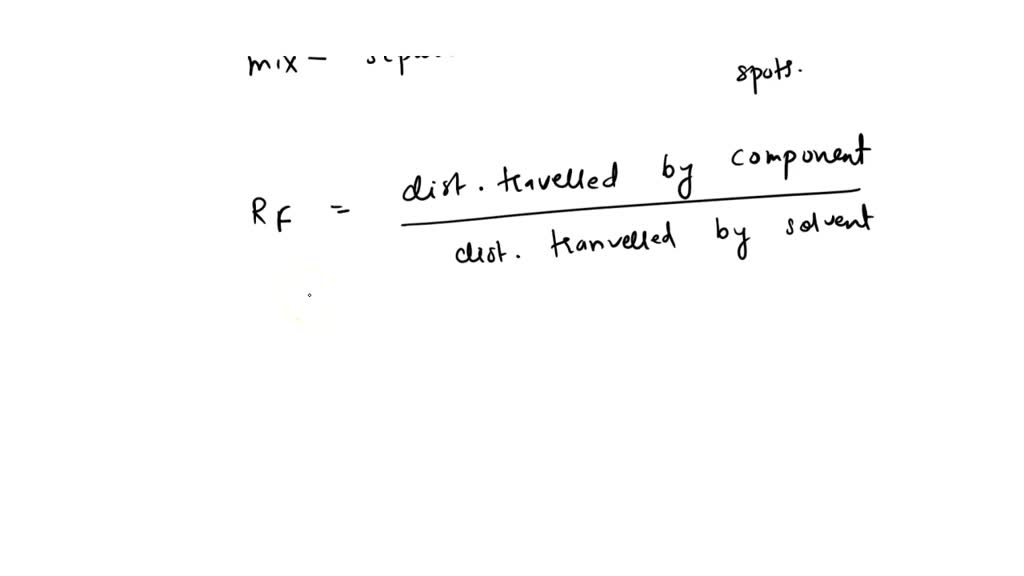 mix –
spots.
dist. travelled by component
RF =
dist. tranvelled by solvent